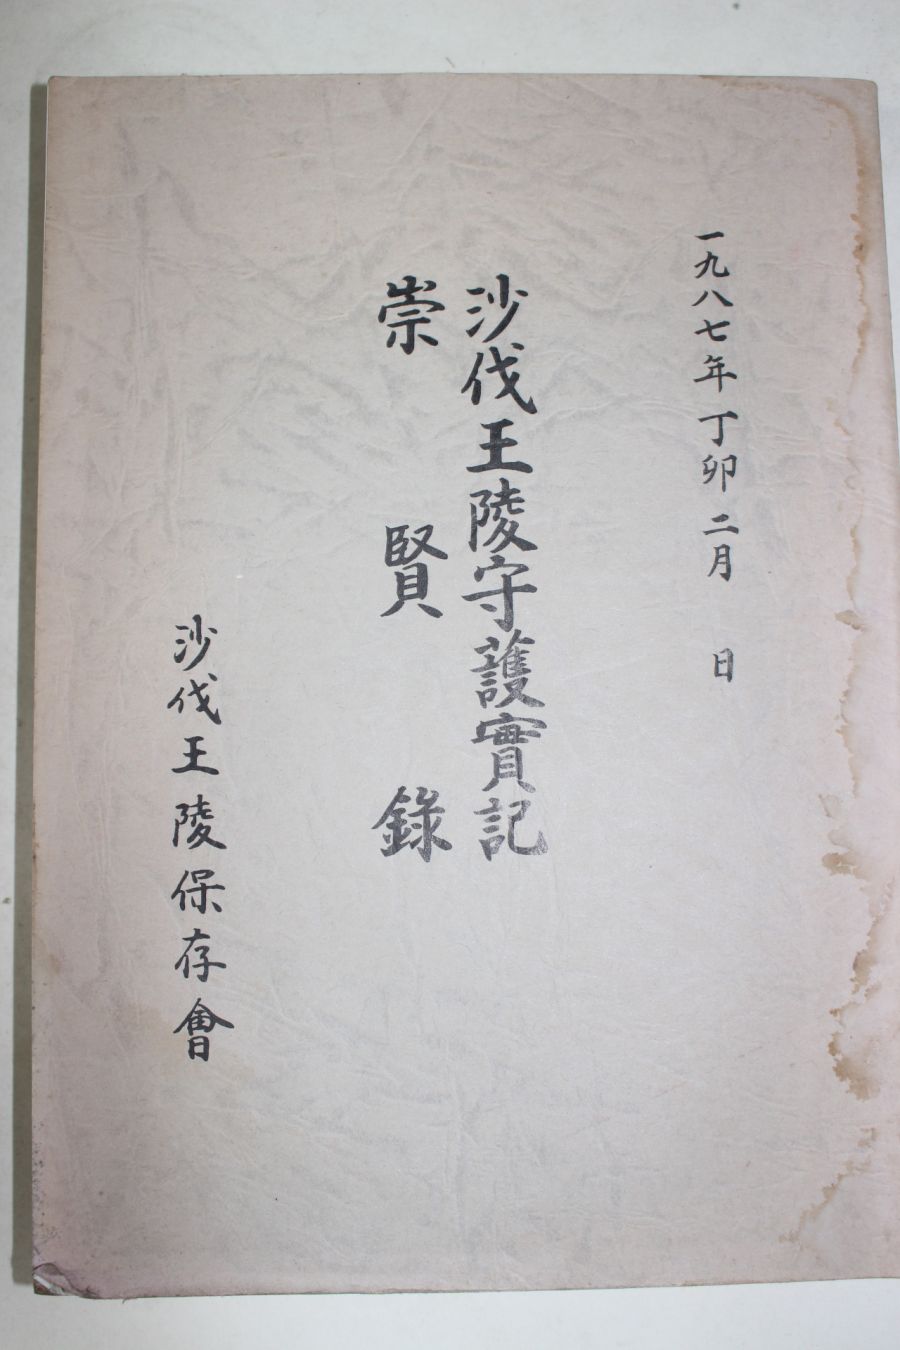 一九八七年丁卯二月　日
沙伐王陵守護實記
崇賢錄
沙伐王陵保存會